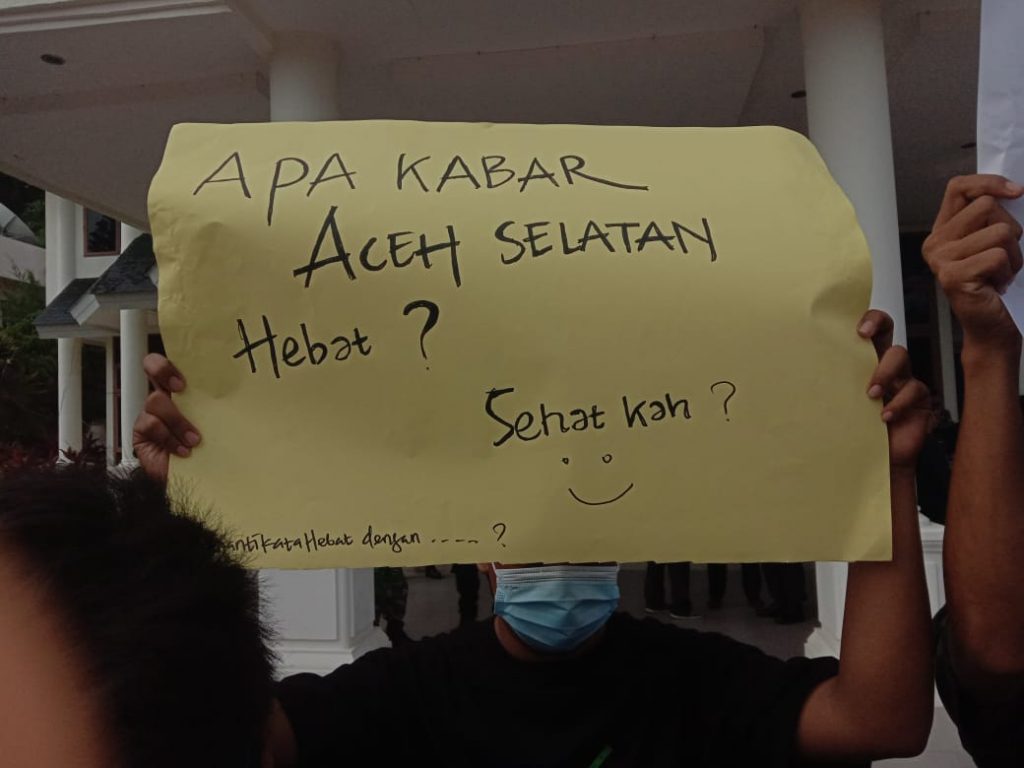 APA KABAR
ACEH SELATAN
Hebat ?
Sehat kah ?
kata Hebat dengan ---- ?